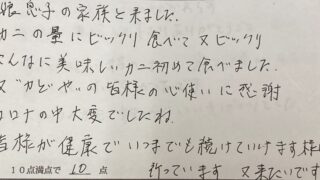 娘息子の家族と来ました.
カニの量にビックリ 食べて又ビックリ
こんなに美味しいカニ初めて食べました.
又"かどや"の皆様の心使いに感謝
コロナの中大変でしたね
皆様が健康でいつまでも続けていけます様
10点満点で 10 点 祈っています 又来たいです